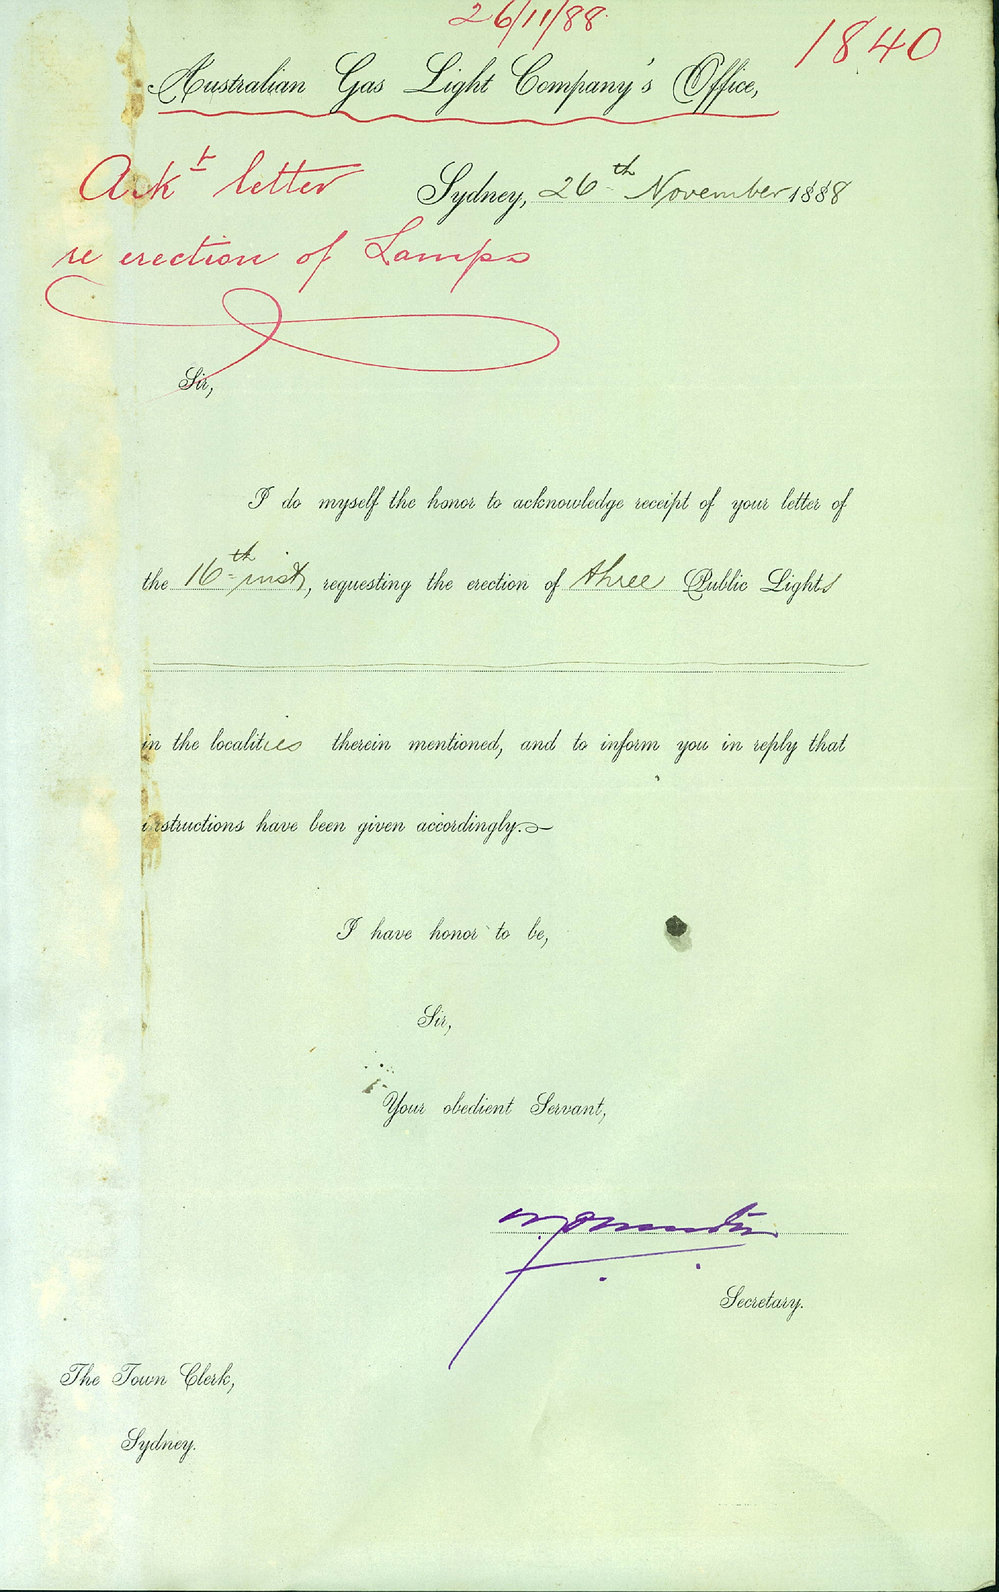 26/11/88.
1840
Australian Gas Light Company's Office,
Ackt letter
Sydney, 26th November 1888
re erection of Lamps
Sir,
I do myself the honor to acknowledge receipt of your letter of
the 16th inst, requesting the erection of three Public Lights
in the localities therein mentioned, and to inform you in reply that
instructions have been given accordingly.
I have honor to be,
Sir,
Your obedient Servant,
Secretary.
The Town Clerk,
Sydney.